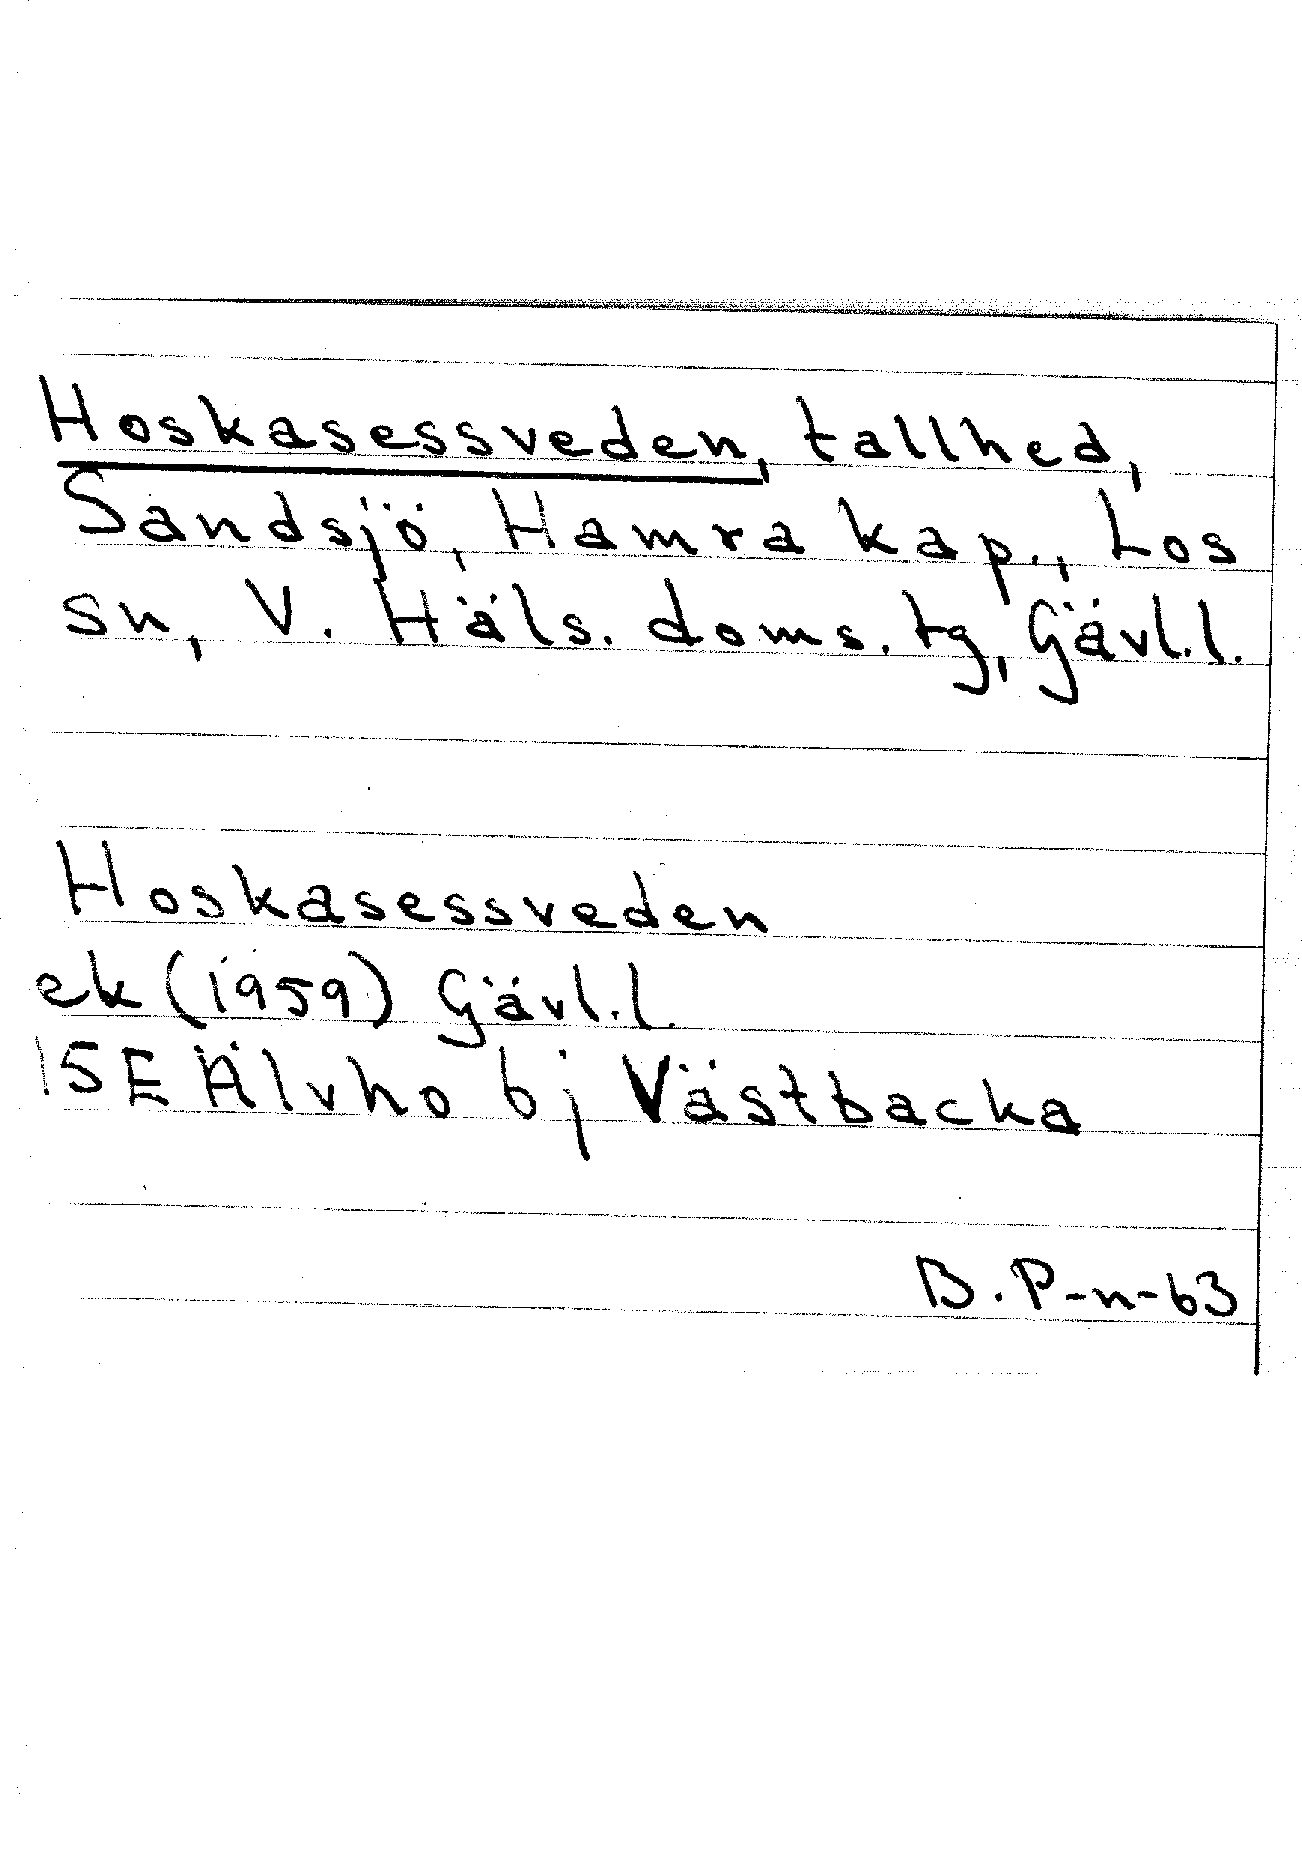 Hoskasessveden, tallhed,
Sandsjö, Hamra kap., Los
sn, V. Häls. doms. tg, Gävl.l.
Hoskasessveden
ek (1959) Gävl.l.
15E Älvho bj Västbacka
B. P-n-63